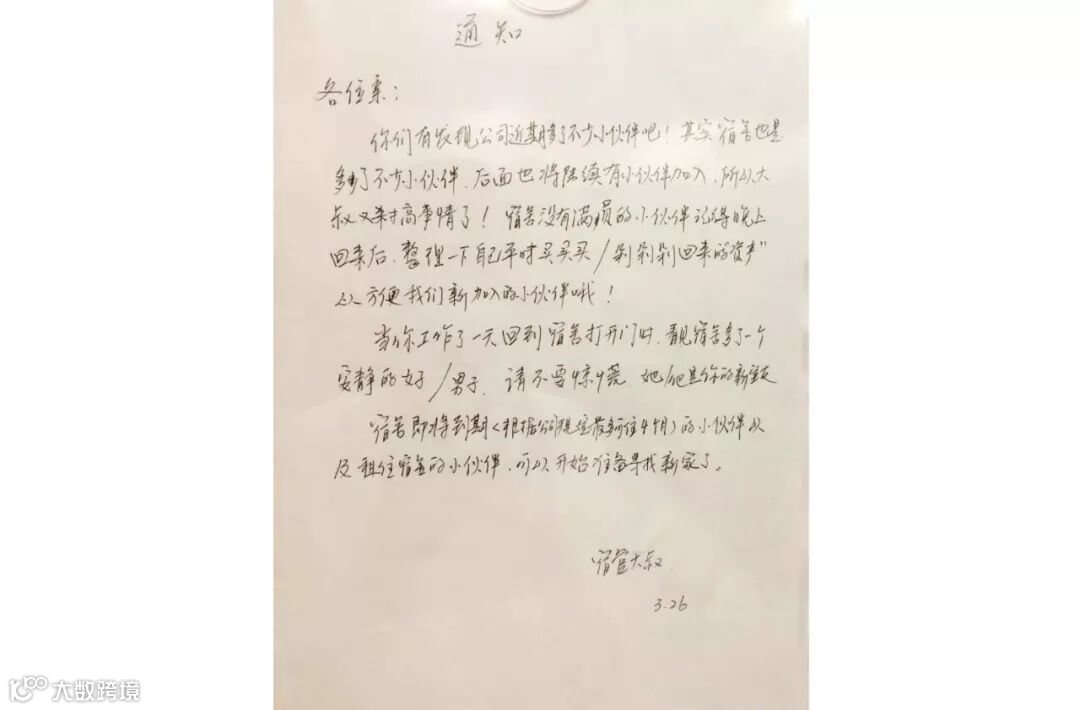 通知
各位亲：
你们有发现公司近期多了不少小伙伴吧！其实宿舍也是
多了不少小伙伴，后面也将陆续有小伙伴加入，所以大
叔又来搞事情了！宿舍没有满员的小伙伴记得晚上
回来后，整理一下自己平时买买买/剁剁剁回来的"资产"
以方便我们新加入的小伙伴哦！
当你工作了一天回到宿舍打开门时，看见宿舍多了一个
安静的女子/男子，请不要惊慌，她/他是你的新室友
宿舍即将到期（根据公司规定最多可住4个月）的小伙伴以
及租住宿舍的小伙伴，可以开始准备寻找新家了。
宿管大叔
3.26
大数跨境